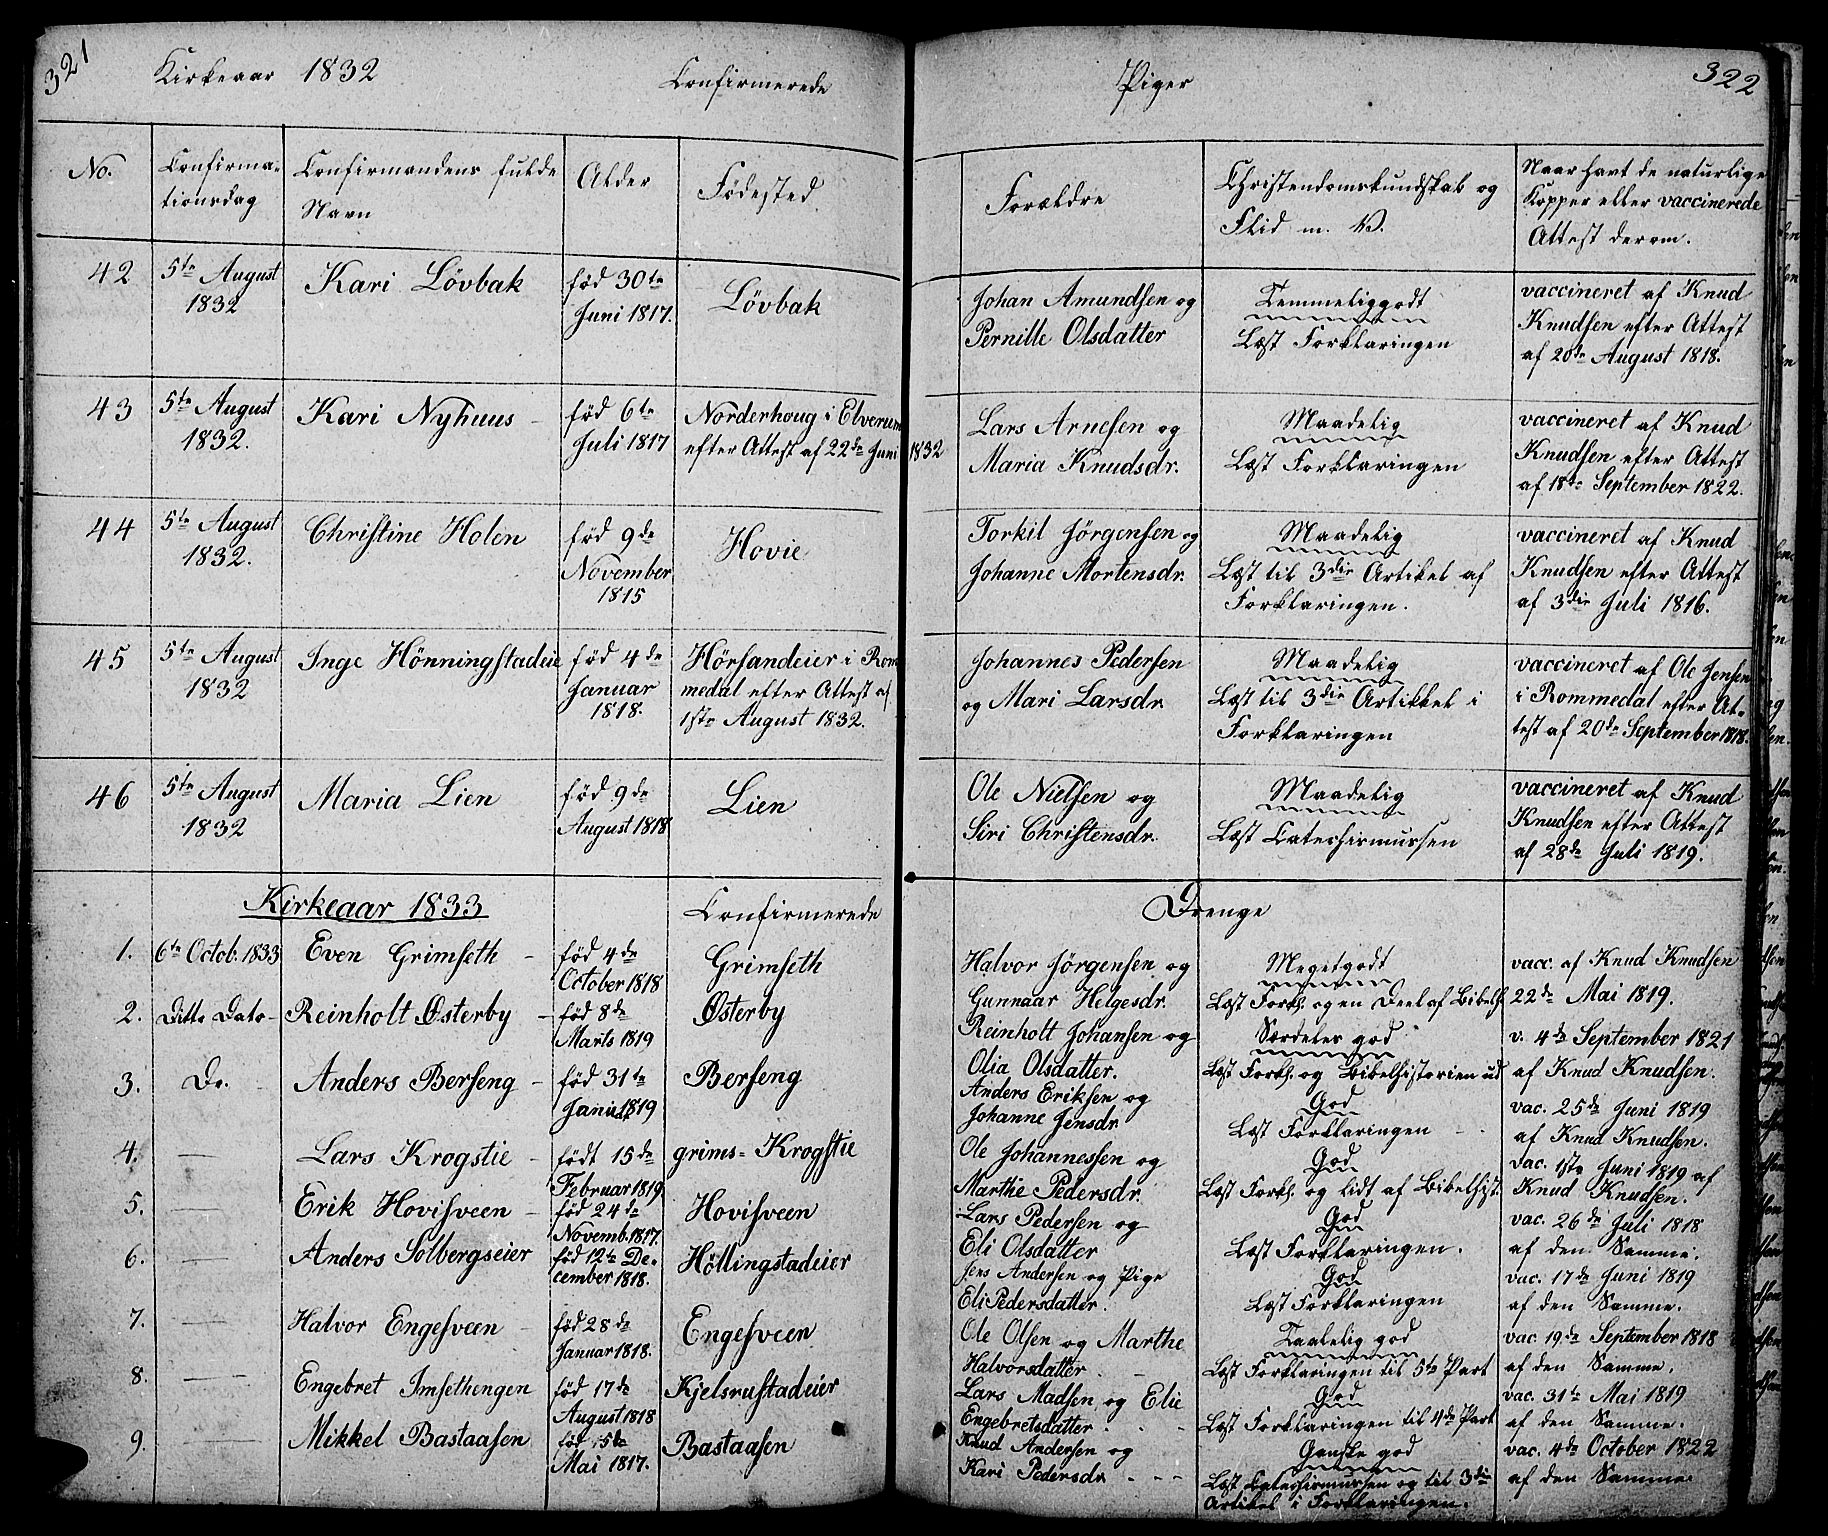 321
Kirkeaar 1832
Confirmerede
Piger
322
No.
Confirma-
tionsdag
Confirmandens fulde
Navn
Alder
Fødested
Forældre
Christendomskundskab og
Flid m. V.
Naar havt de naturlige
Kopper eller vaccinerede
Attest derom.
42
5te August
1832
Kari Lövbak
föd 30te
Juni 1817.
Lövbak
Johan Amundsen og
Pernille Olsdatter
Temmeliggodt
Læst Forklaringen
vaccineret af Knud
Knudsen efter Attest
af 20de August 1818.
43
5te August
1832.
Kari Nyhuus
föd 6te
Juli 1817
Norderhoug i Elverum
efter Attest af 22de Juni 1832
Lars Arnesen og
Maria Knudsdr.
Maadelig
Læst Forklaringen
vaccineret af Knud
Knudsen efter Attest
af 18de September 1822.
44
5te August
1832.
Christine Holen
föd 9de
November
1815
Hovie
Torkil Jörgensen og
Johanne Mortensdr.
Maadelig
Læst til 3die Artikel af
Forklaringen.
vaccineret af Knud
Knudsen efter Attest
af 3die Juli 1816.
45
5te August
1832
Inge Hönningstadeie
föd 4de
Januar
1818.
Hörsandeier i Rom
medal efter Attest af
1ste August 1832.
Johannes Pedersen
og Mari Larsdr.
Maadelig
Læst til 3die Artikkel i
Forklaringen
vaccineret af Ole Jensen
i Rommedal efter At-
test af 20de September 1818.
46
5te August
1832
Maria Lien
föd 9de
August 1818
Lien
Ole Nielsen og
Siri Christensdr.
Maadelig
Læst Catechismussen
vaccineret af Knud
Knudsen efter Attest
af 28de Juli 1819.
Kirkeaar 1833
Confirmerede
Drenge
1.
6te Octob. 1833
Even Grimseth
föd 4de
October 1818
Grimseth
Halvor Jörgensen og
Gunnaar Helgesdr.
Megetgodt
Læst Fork. og en Deel af Bibelh.
vacc. af Knud Knudsen
22de Mai 1819.
2.
Ditto Dato
Reinholt Østerby
föd 8de
Marts 1819
Østerby
Reinholt Johansen og
Olia Olsdatter.
Særdeles god
Læst Fork. og Bibelhistorien ud
v. 4de September 1821
af Knud Knudsen.
3.
Do.
Anders Berseng
föd 31te
Januar 1819
Berseng
Anders Eriksen og
Johanne Jensdr.
God
Læst Forklaringen
vac. 25de Juni 1819
af Knud Knudsen.
4.
Lars Krogstie
födt 15de
Februar 1819
grims= Krogstie
Ole Johannessen og
Marthe Pedersdr.
God
Læst Fork. og lidt af Bibelhist.
vac. 1ste Juni 1819 af
Knud Knudsen.
5.
Erik Hovisveen
föd 24de
Novemb. 1817
Hovisveen
Lars Pedersen og
Eli Olsdatter
God
Læst Forklaringen.
vac. 26de Juli 1818
af den Samme.
6.
Anders Solbergseier
föd 12te De-
cember 1818.
Höllingstadeier
Jens Andersen og Pige
Eli Pedersdatter.
God
Læst Forklaringen
vac. 17de Juni 1819
af den Samme.
7.
Halvor Engesveen
föd 28de
Januar 1818.
Engesveen
Ole Olsen og Marthe
Halvorsdatter
Taalelig god
Læst Forklaringen til 5te Part
vac. 19de September 1818
af den Samme.
8.
Engebret Imsethengen
föd 17de
August 1818
Kjelsrustadeier
Lars Madsen og Elie
Engebretsdatter.
God
Læst Forklaringen til 4de Part
vac. 31te Mai 1819
af den Samme.
9.
Mikkel Bastaasen
föd 15de
Mai 1817.
Bastaasen
Knud Andersen og
Kari Pedersdr.
Ganske god
Læst Catechismussen og til 3die
Artikel i Forklaringen.
vac. 4de October 1822
af den Samme